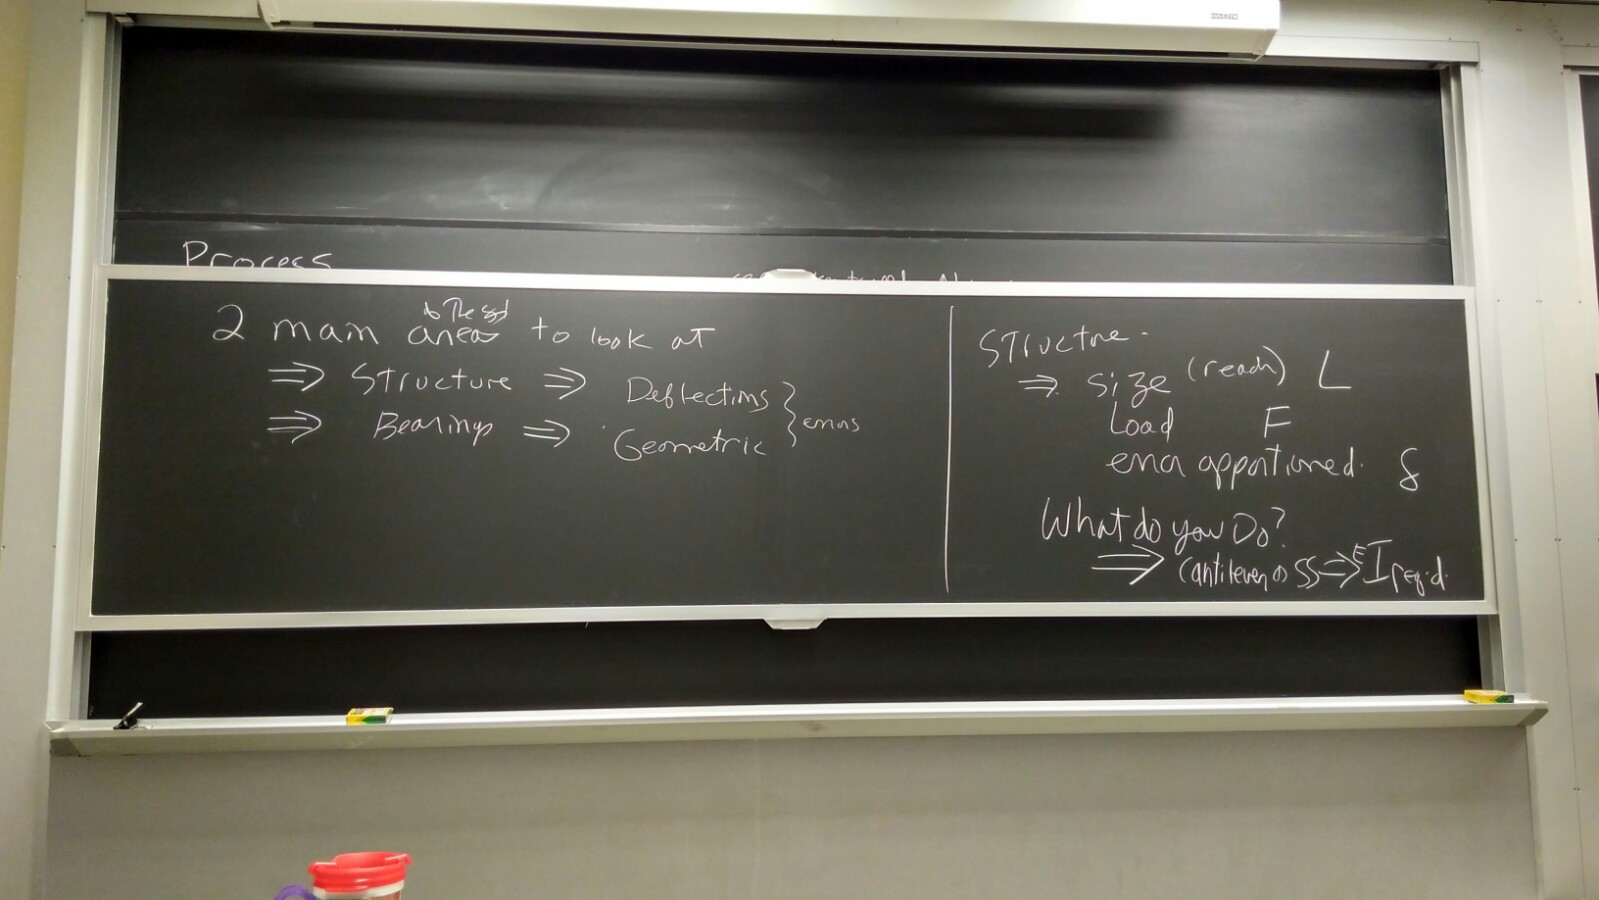 Process
2 main areas to look at
⇒ Structure ⇒ Deflections
⇒ Bearings ⇒ Geometric } errors
Structure -
⇒ Size (reach) L
Load F
error apportioned. δ
What do you Do?
⇒ Cantilever or SS ⇒ EI req'd.